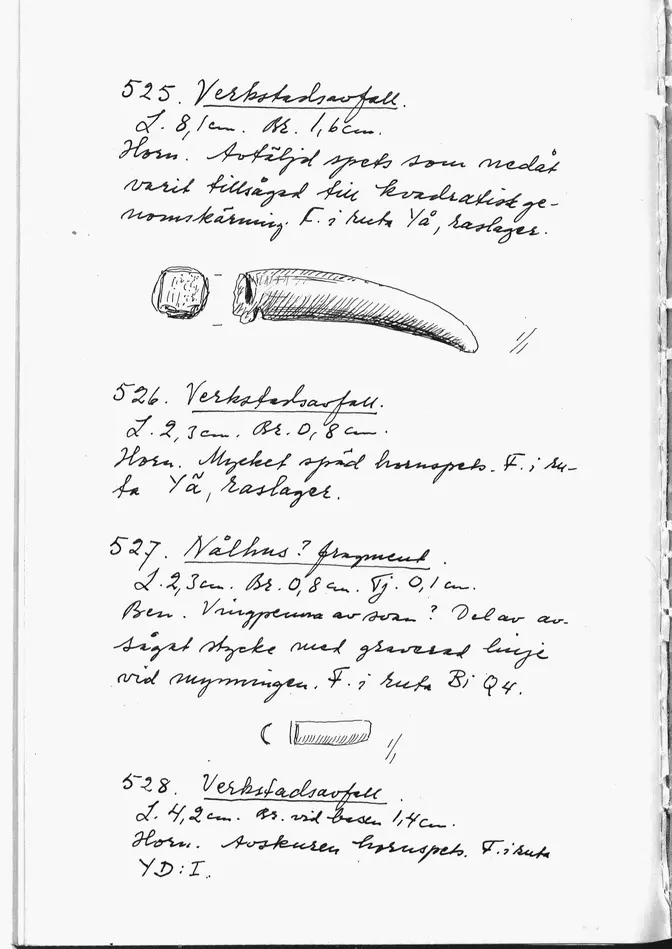 525. Verkstadsavfall.
L. 8,1 cm. Br. 1,6 cm.
Horn. Avtäljd spets som nedåt
varit tillsågad till kvadratisk ge-
nomskärning. F. i ruta Yå, raslager.
1/1
526. Verkstadsavfall.
L. 2,3 cm. Br. 0,8 cm.
Horn. Mycket späd hornspets. F. i ru-
ta Yã, raslager.
527. Nålhus? fragment.
L. 2,3 cm. Br. 0,8 cm. Tj. 0,1 cm.
Ben. Vingpenna av svan? Del av av-
sågat stycke med graverad linje
vid mynningen. F. i ruta Bi Q4.
1/1
528. Verkstadsavfall.
L. 4,2 cm. Br. vid basen 1,4 cm.
Horn. Avskuren hornspets. F. i ruta
YD: I.